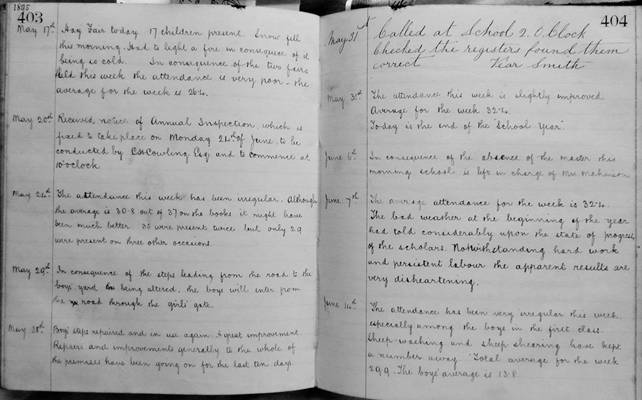 1895
403
May 17th Hay Fair today. 17 children present. Snow fell
this morning. Had to light a fire in consequence of it
being so cold. In consequence of the two fairs
held this week the attendance is very poor - the
average for the week is 26.4.
May 20th Received notice of Annual Inspection, which is
fixed to take place on Monday 24th of June, to be
conducted by Cowling Esq and to commence at
10 o'clock
May 24th The attendance this week has been irregular. Although
the average is 30.8 out of 37 on the books it might have
been much better. 35 were present twice but only 29
were present on three other occasions.
May 29th In consequence of the steps leading from the road to the
boys' yard being altered, the boys will enter from
the road through the girls' gate.
May Boys' steps repaired and in use again. A great improvement.
Repairs and improvements generally to the whole of
the premises have been going on for the last ten days.
404
May 31st Called at School 2. O. Clock
Checked the registers found them
correct Vicar Smith
May 31st The attendance this week is slightly improved
Average for the week 32.4.
Today is the end of the "School Year".
June 6th In consequence of the absence of the master this
morning school is left in charge of Mrs
June 7th The average attendance for the week is 32.4.
The bad weather at the beginning of the year
had told considerably upon the state of progress
of the scholars. Notwithstanding hard work
and persistent labour the apparent results are
very disheartening.
June 14th The attendance has been very irregular this week
especially among the boys in the first class.
Sheep-washing and sheep shearing have kept
a number away. Total average for the week
29.9. The boys' average is 13.8.